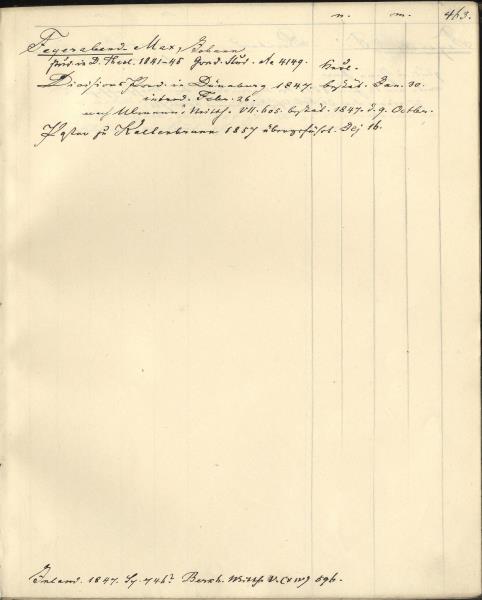 n. m. 463.
Feyerabend Max, Johann
stud. in D. Theol. 1841-45 Grad. Stud. № 4149. Kurl.
Divisions Pred. in Dünaburg 1847. bestät. Jan. 30.
introd. Febr. 26.
nach Ulmanns Mitth. VII. 605. bestät. 1847. d. 9. Octbr.
Pastor zu Kaltenbrunn 1857 übergeführt. Dej 16.
Inland. 1847. Sp. 746. Berkh. Mitth. V. 596.